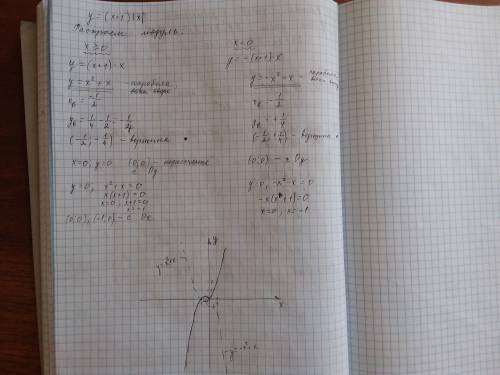 y = (x+1)|x|
Раскроем модуль.
x ≥ 0
y = (x+1)·x
y = x² + x - парабола,
ветви вверх
x₀ = -1/2
y₀ = 1/4 - 1/2 = -1/4
(-1/2; -1/4) - вершина
x=0, y=0 (0;0) - пересечение
с Oy
y=0, x²+x=0
x(x+1)=0
x=0; x+1=0
x=-1
(0;0), (-1;0) - с Ox
x < 0
y = -(x+1)·x
y = -x² - x - парабола
ветви вниз
x₀ = -1/2
y₀ = +1/4
(-1/2; +1/4) - вершина
(0;0) - с Oy
y=0, -x²-x=0
-x(x+1)=0
x=0; x=-1
y
y=x²+x
x
y=-x²-x